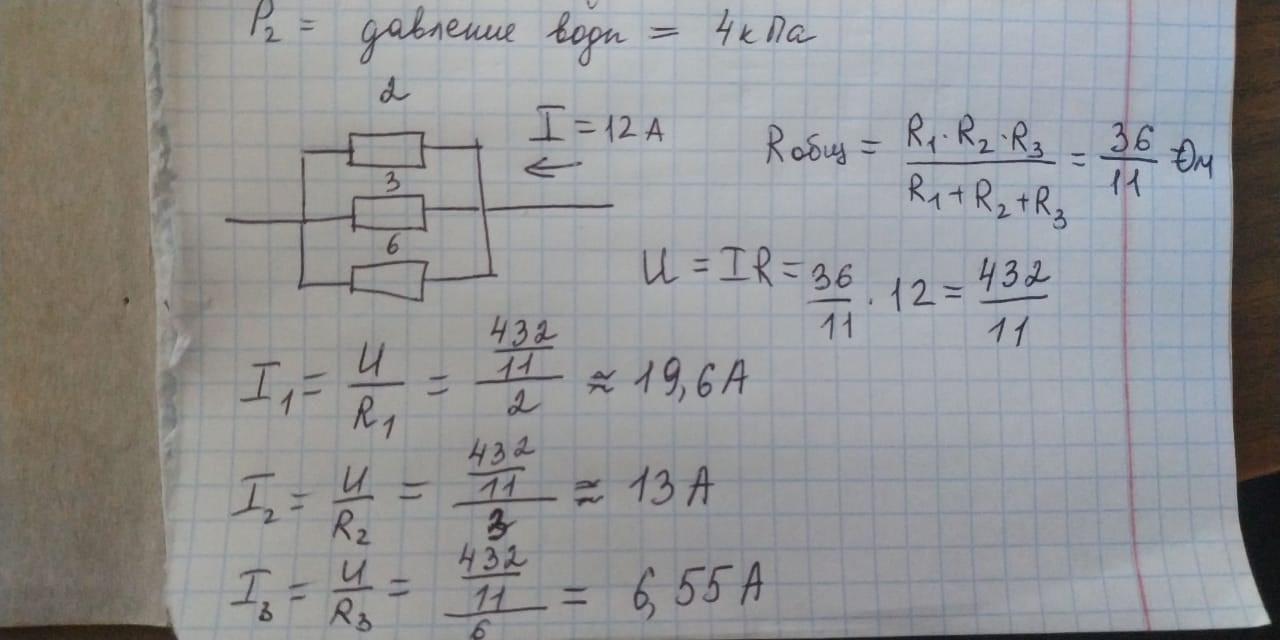 P₂ = давление воды = 4кПа
2
I = 12 А
3
6
Rобщ = (R₁·R₂·R₃)/(R₁+R₂+R₃) = 36/11 Ом
U = IR = 36/11 · 12 = 432/11
I₁ = U/R₁ = (432/11)/2 ≈ 19,6А
I₂ = U/R₂ = (432/11)/3 ≈ 13А
I₃ = U/R₃ = (432/11)/6 = 6,55А